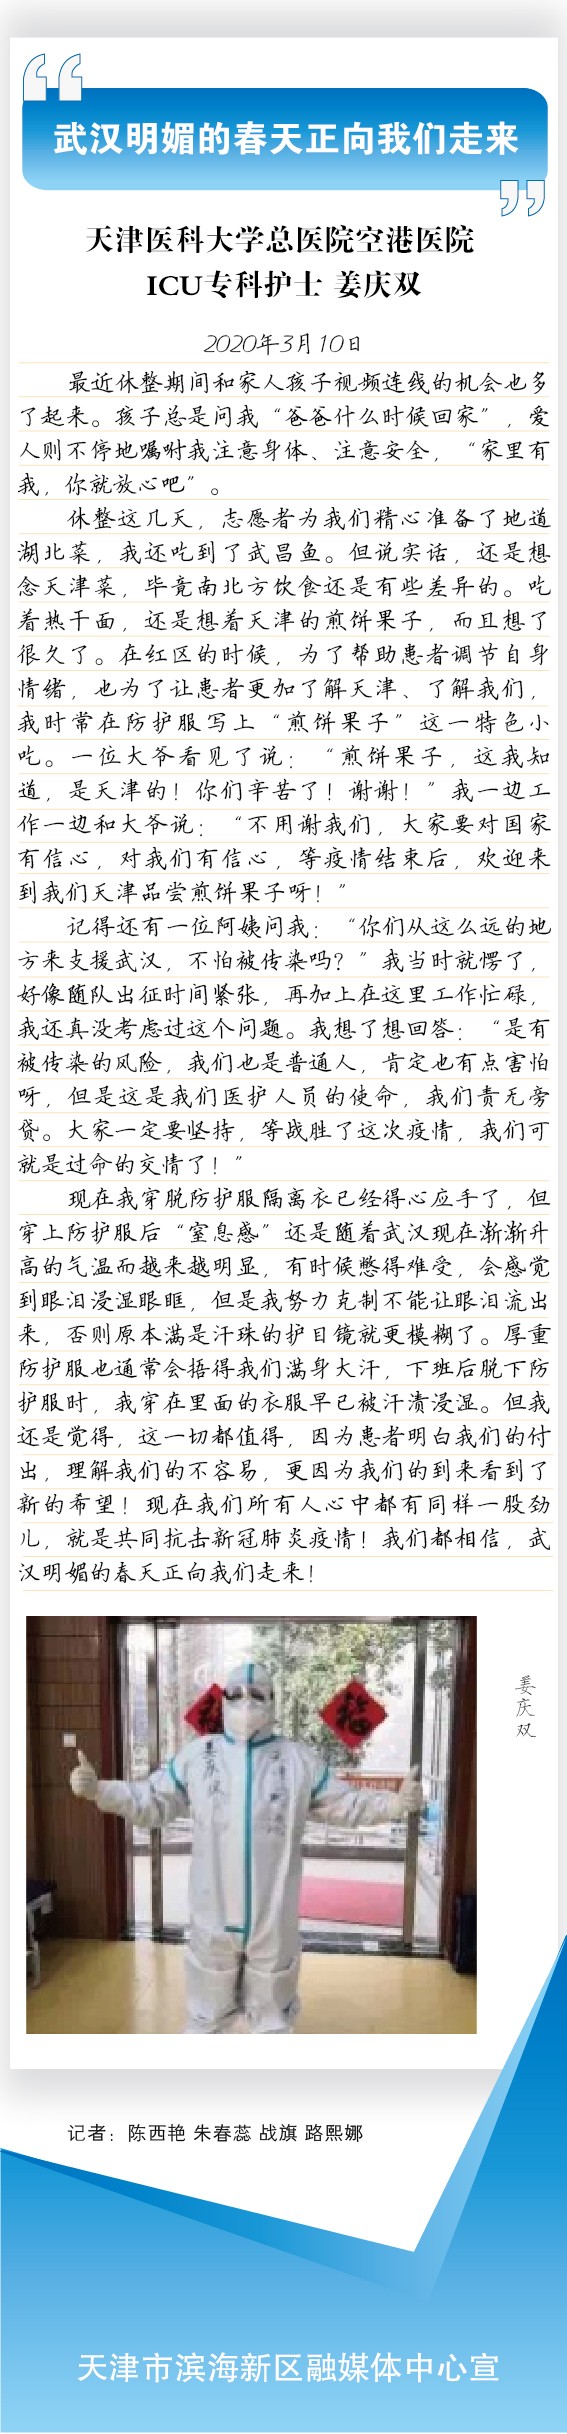 武汉明媚的春天正向我们走来
天津医科大学总医院空港医院
ICU专科护士 姜庆双
2020年3月10日
最近休整期间和家人孩子视频连线的机会也多
了起来。孩子总是问我“爸爸什么时候回家”，爱
人则不停地嘱咐我注意身体、注意安全，“家里有
我，你就放心吧”。
休整这几天，志愿者为我们精心准备了地道
湖北菜，我还吃到了武昌鱼。但说实话，还是想
念天津菜，毕竟南北方饮食还是有些差异的。吃
着热干面，还是想着天津的煎饼果子，而且想了
很久了。在红区的时候，为了帮助患者调节自身
情绪，也为了让患者更加了解天津、了解我们，
我时常在防护服写上“煎饼果子”这一特色小
吃。一位大爷看见了说：“煎饼果子，这我知
道，是天津的！你们辛苦了！谢谢！”我一边工
作一边和大爷说：“不用谢我们，大家要对国家
有信心，对我们有信心，等疫情结束后，欢迎来
到我们天津品尝煎饼果子呀！”
记得还有一位阿姨问我：“你们从这么远的地
方来支援武汉，不怕被传染吗？”我当时就愣了，
好像随队出征时间紧张，再加上在这里工作忙碌，
我还真没考虑过这个问题。我想了想回答：“是有
被传染的风险，我们也是普通人，肯定也有点害怕
呀，但是这是我们医护人员的使命，我们责无旁
贷。大家一定要坚持，等战胜了这次疫情，我们可
就是过命的交情了！”
现在我穿脱防护服隔离衣已经得心应手了，但
穿上防护服后“窒息感”还是随着武汉现在渐渐升
高的气温而越来越明显，有时候憋得难受，会感觉
到眼泪浸湿眼眶，但是我努力克制不能让眼泪流出
来，否则原本满是汗珠的护目镜就更模糊了。厚重
防护服也通常会捂得我们满身大汗，下班后脱下防
护服时，我穿在里面的衣服早已被汗渍浸湿。但我
还是觉得，这一切都值得，因为患者明白我们的付
出，理解我们的不容易，更因为我们的到来看到了
新的希望！现在我们所有人心中都有同样一股劲
儿，就是共同抗击新冠肺炎疫情！我们都相信，武
汉明媚的春天正向我们走来！
福
姜庆双
姜庆双
记者：陈西艳 朱春蕊 战旗 路熙娜
天津市滨海新区融媒体中心宣